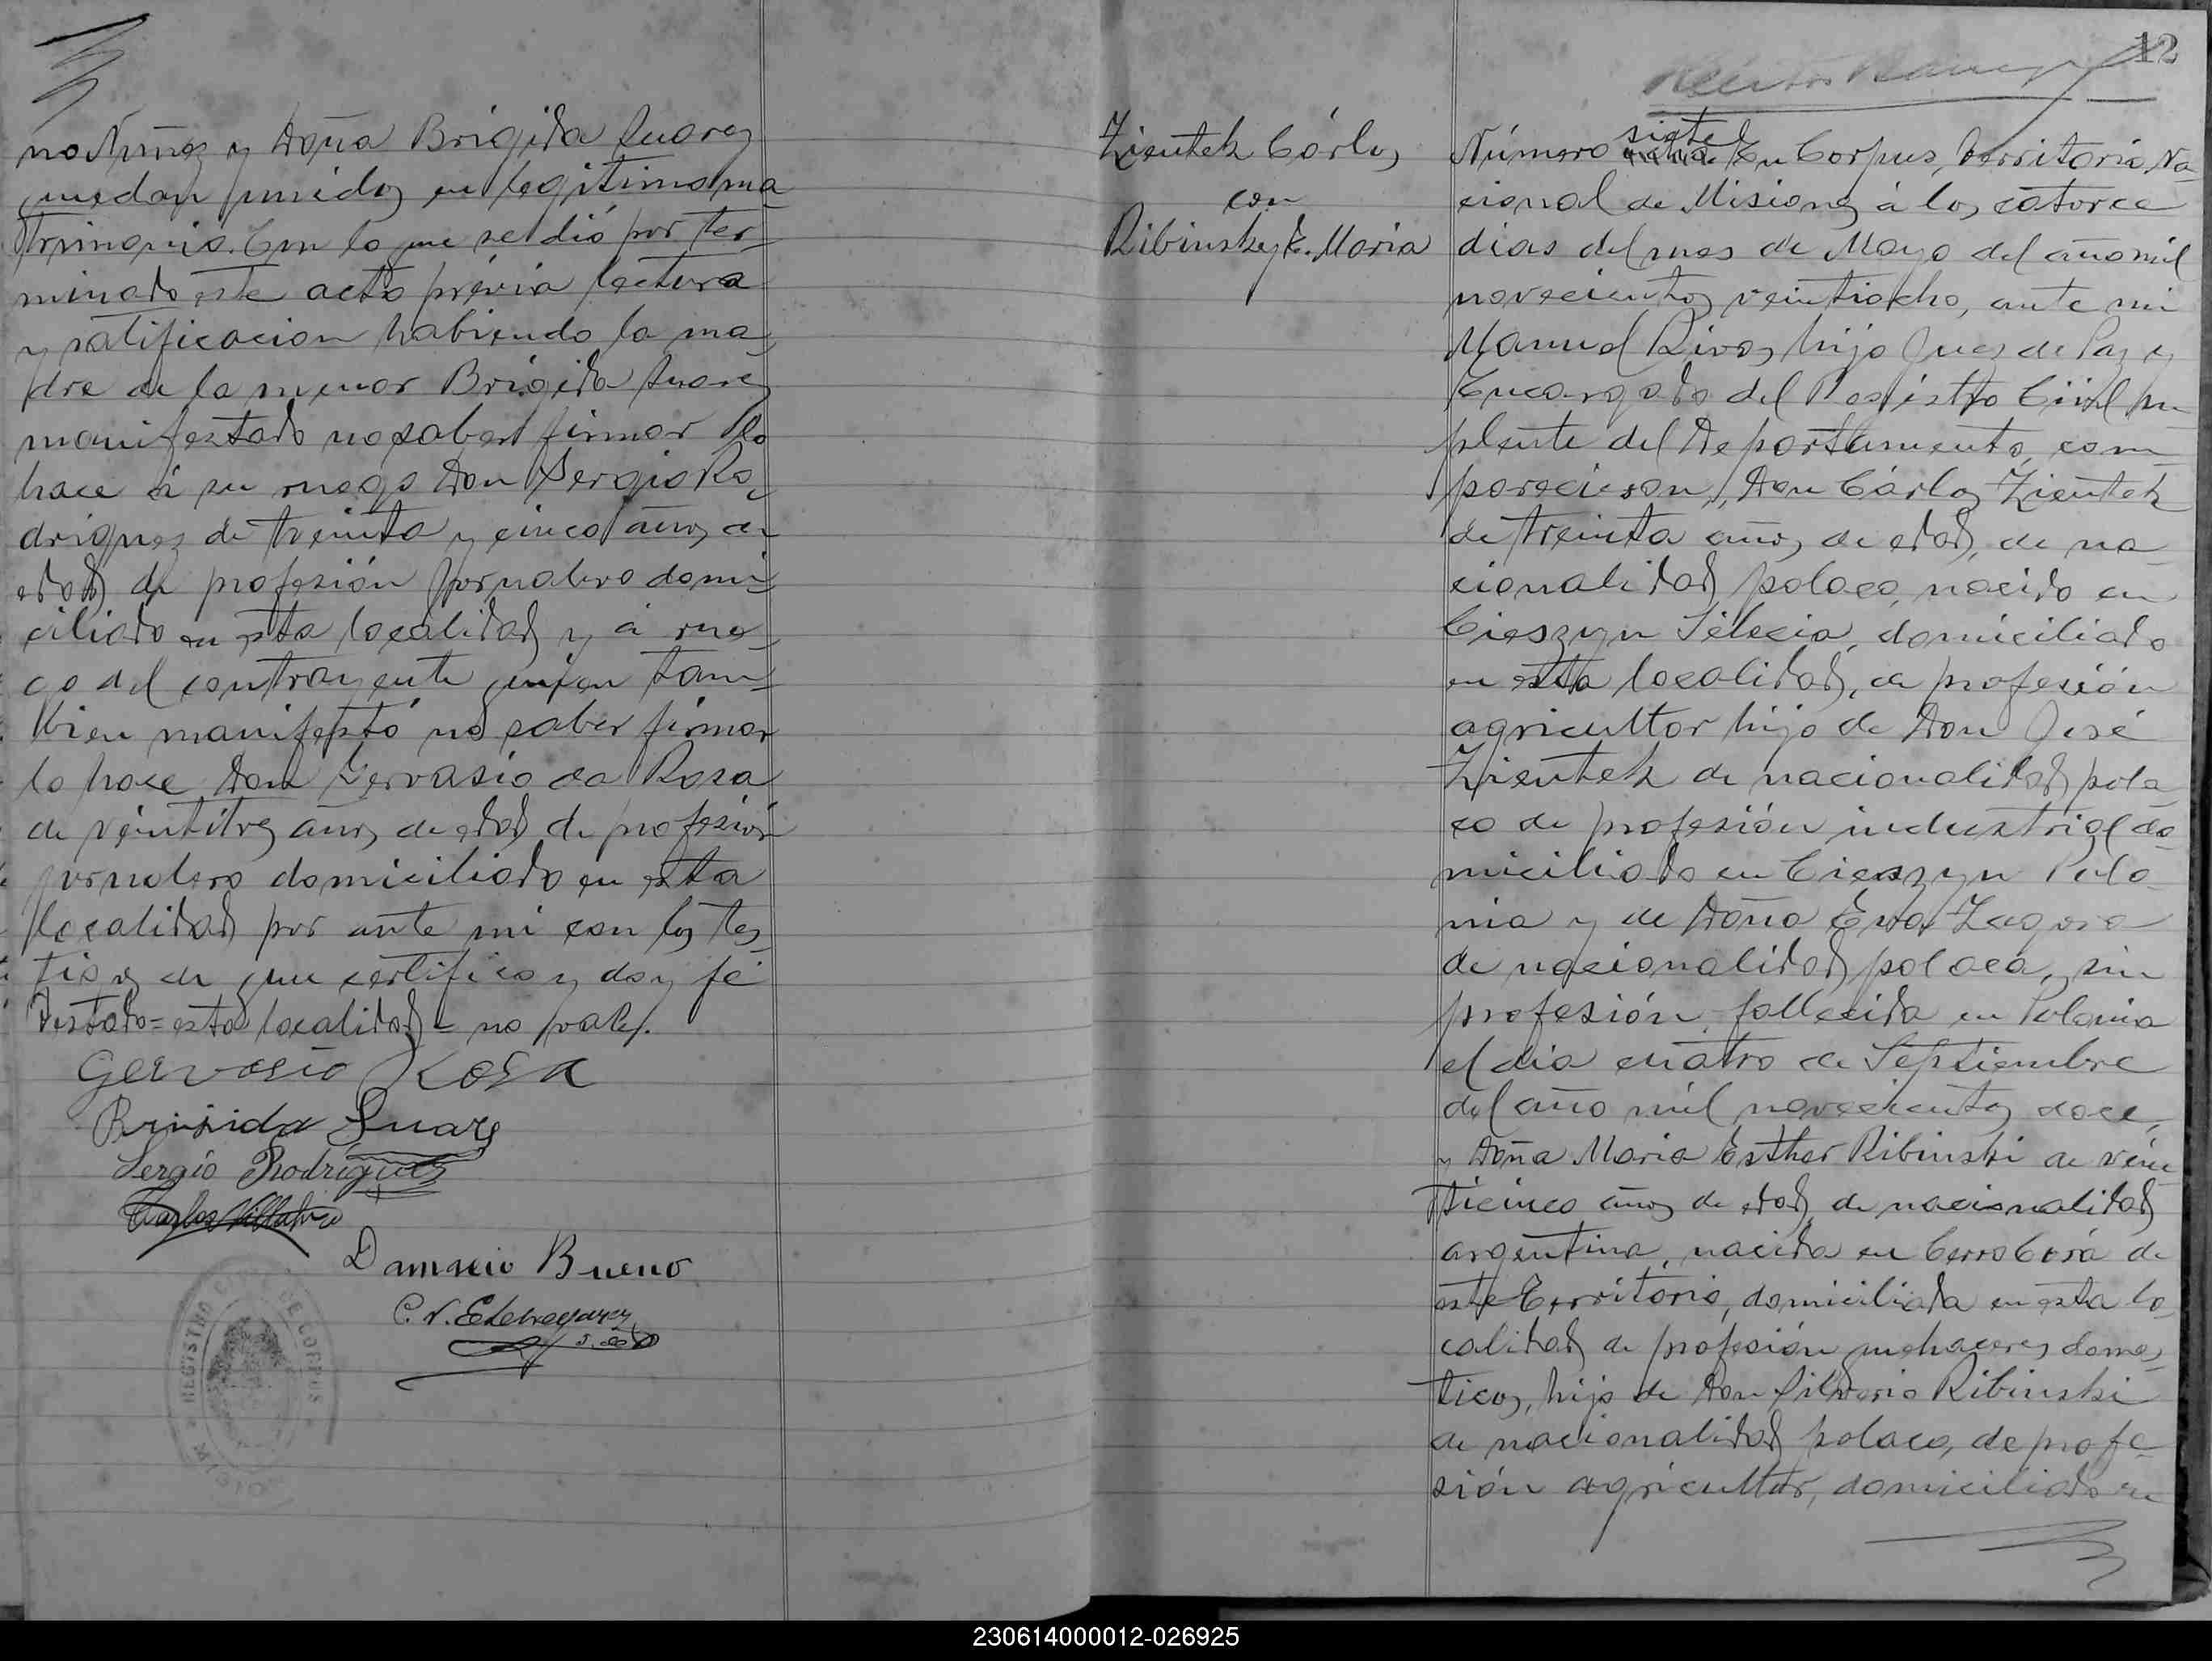 no Nuñez y Doña Brígida Suarez
quedan unidos en legítimo ma-
trimonio. Con lo que se dió por ter-
minado este acto prévia lectura
y ratificacion habiendo la ma-
dre de la menor Brígida Suarez
manifestado no saber firmar lo
hace á su ruego Don Sergio Ro-
driguez de treinta y cinco años de
edad de profesión jornalero domi-
ciliado en esta localidad y á rue-
go del contrayente quien tam-
bien manifestó no saber firmar
lo hace Don Gervasio da Rosa
de veintitres años de edad de profesión
jornalero domiciliado en esta
localidad por ante mi con los tes-
tigos de que certifico y doy fé
Testado=esta localidad= no vale.
Gervasio Rosa
Brijida Suarez
Sergio Rodriguez
Carlos Villalva
Damacio Bueno
C. N. Etchegaray
REGISTRO CIVIL DE CORPUS
12
Zientek Cárlos
con
Ribinsky E. Maria
siete
Número En Corpus, Territorio Na-
cional de Misiones á los catorce
dias del mes de Mayo del año mil
novecientos veintiocho, ante mi
Manuel Rivas hijo Juez de Paz y
Encargado del Registro Civil su-
plente del Departamento, com-
parecieron, Don Cárlos Zientek
de treinta años de edad, de na-
cionalidad polaco, nacido en
Cieszyn Silecia, domiciliado
en esta localidad, de profesión
agricultor hijo de Don José
Zientek de nacionalidad pola-
co de profesión industrial do-
miciliado en Cieszyn Polo-
nia y de Doña Eva Zagora
de nacionalidad polaca, sin
profesión, fallecida en Polonia
el dia cuatro de Septiembre
del año mil novecientos doce,
y Doña Maria Esther Ribinski de vein-
ticinco años de edad, de nacionalidad
argentina, nacida en Cerro Corá de
este Territorio, domiciliada en esta lo-
calidad de profesión quehaceres domes-
ticos, hija de Don Silverio Ribinski
de nacionalidad polaco, de profe-
sión agricultor, domiciliado en
230614000012-026925